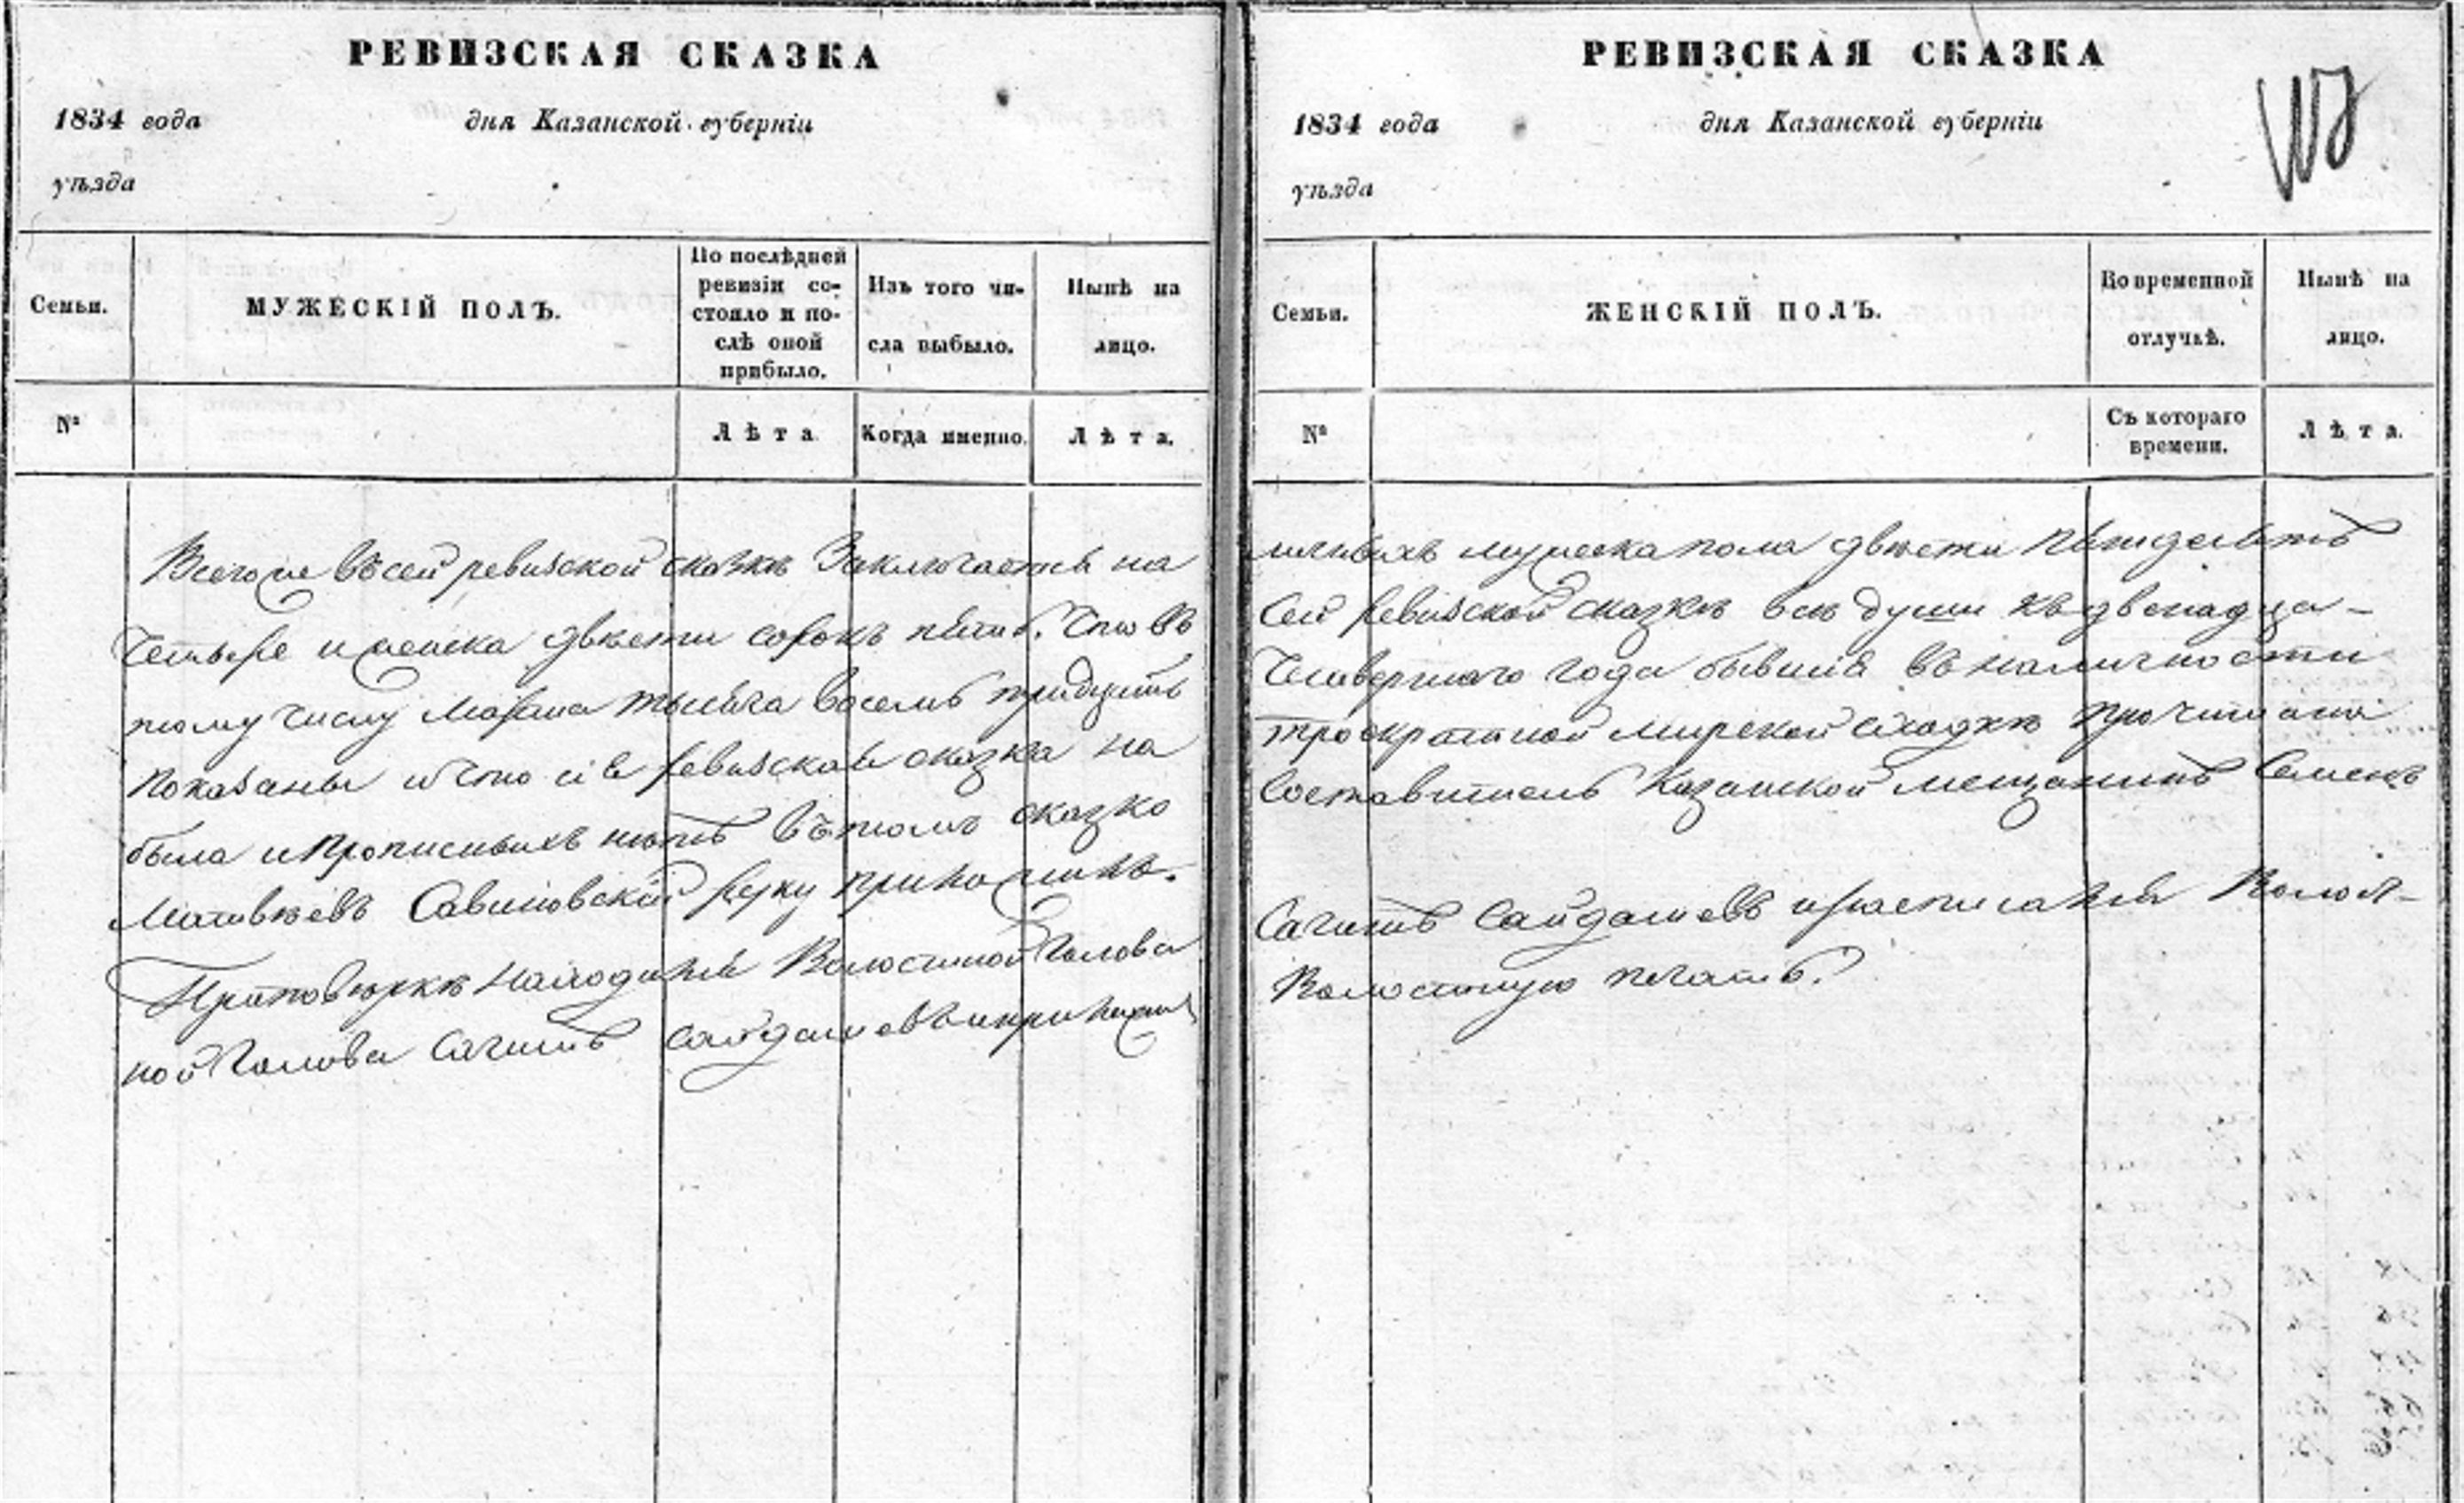 РЕВИЗСКАЯ СКАЗКА
1834 года дня Казанской губерніи
уѣзда
Семьи.
МУЖЕСКІЙ ПОЛЪ.
По послѣдней
ревизіи со-
стояло и по-
слѣ оной
прибыло.
Изъ того чи-
сла выбыло.
Нынѣ на
лицо.
№
Лѣта.
Когда именно.
Лѣта.
Всего же въ сей ревизской сказкѣ Заключается на
Четыре и женска двѣсти сорокъ пять. Что въ
тому числу Марта тысяча восемь тридцать
показаны и что сія ревизская сказка на
была и прописныхъ нѣтъ въ томъ сказко
Матвѣевъ Савиновскій руку приложилъ.
При повѣркѣ находился Волостной Голова
ной Голова Сагитъ Сайдашевъ и приложил
РЕВИЗСКАЯ СКАЗКА
1834 года дня Казанской губерніи
уѣзда
Семьи.
ЖЕНСКІЙ ПОЛЪ.
Во временной
отлучкѣ.
Нынѣ на
лицо.
№
Съ котораго
времени.
Лѣта.
личныхъ мужеска пола двѣсти пятьдесятъ
Сей ревизской сказкѣ всѣ души къ двенадца-
Четвертаго года бывшія въ наличности
троекратной мирской сходкѣ прочитана
составитель Казанской мещанинъ Семенъ
Сагитъ Сайдашевъ и расписался Волост-
Волостную печать.